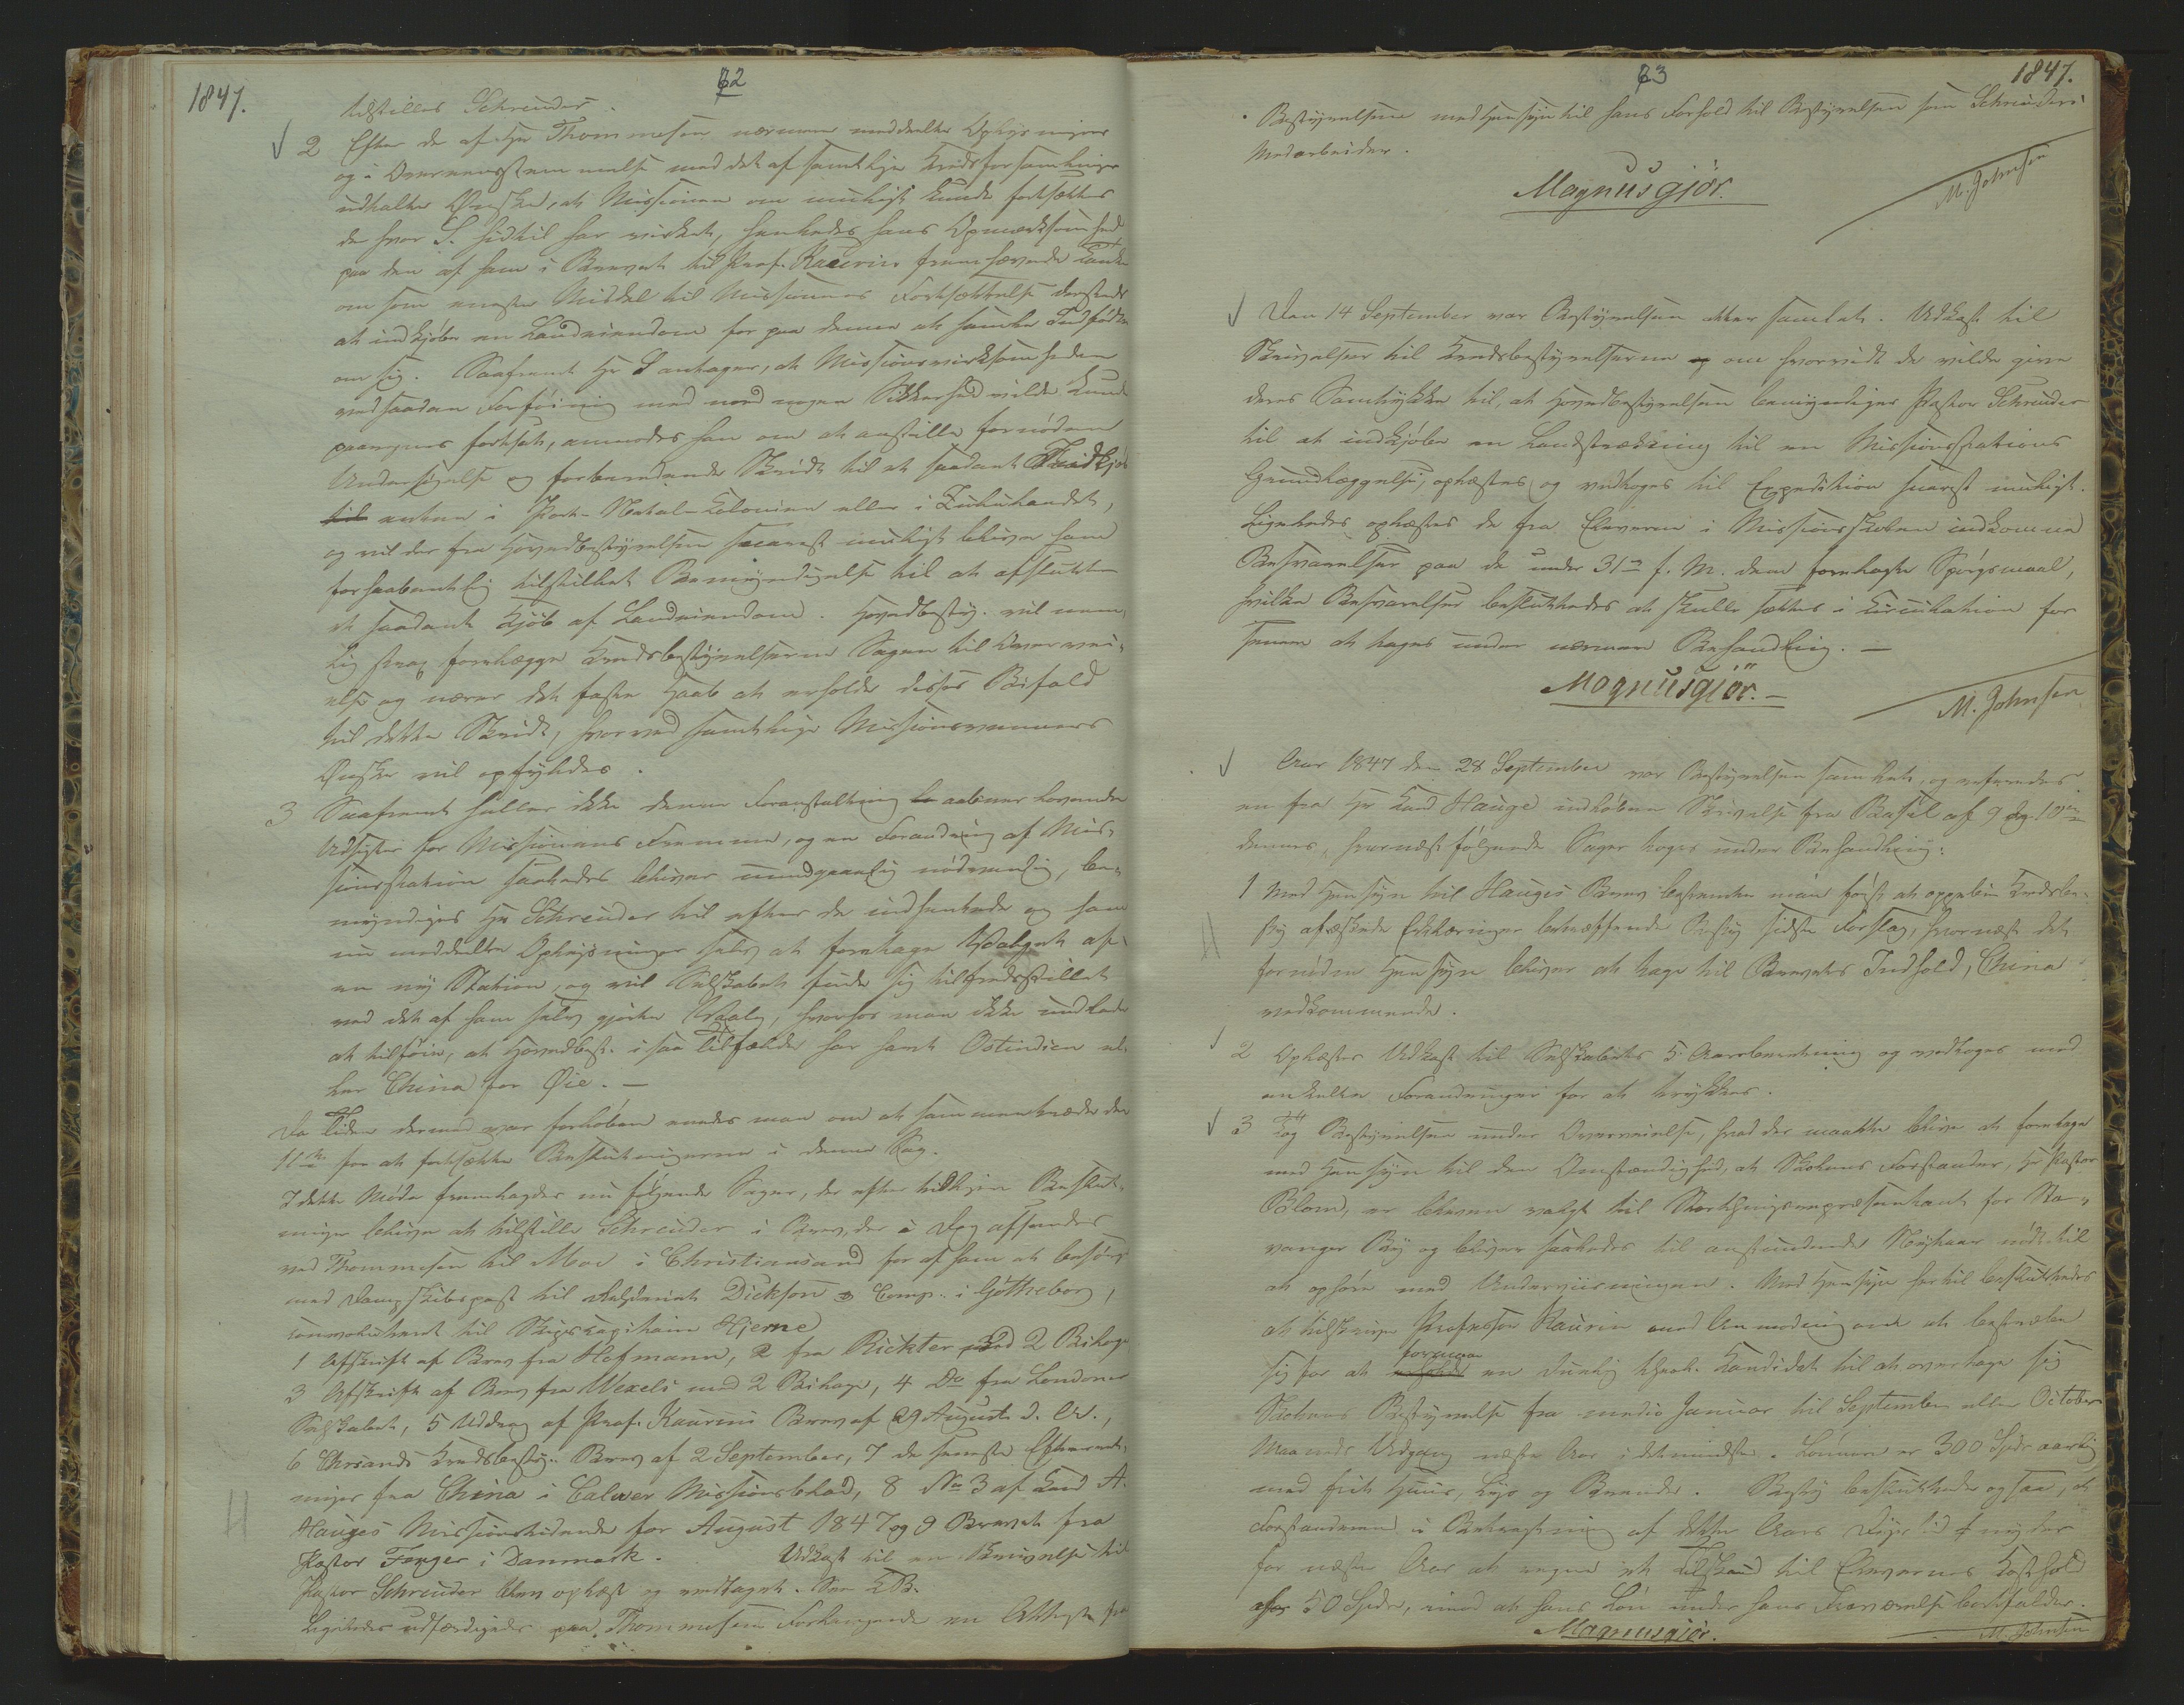 1847.
62
tilstilles Schreuder.
2 Efter de af Hr Thommesen nærmere meddeelte Oplysninger
og i Overeensstemmelse med det af samtlige Kredsforsamlinger
udtalte Ønske, at Missionen om muligt kunde fortsættes
der hvor S. hidtil har virket, henledes hans Opmærksomhed
paa den af ham i Brevet til Prof. Kaurin fremsævede Tanke
om som eneste Middel til Missionens Fortsættelse dersteds
at indkjøbe en Landeiendom for paa denne at samle Indfødte
om sig. Saafremt Hr S antager, at Missionsvirksomheden
ved saadan Forføining med nogen Sikkerhed vilde kunde
paaregnes fortsat, anmodes han om at anstille fornødne
Undersøgelse og forberedende Skridt til et saadant Indkjøb
til enten i Port-Natal-Kolonien eller i Zululandet,
og vil der fra Hovedbestyrelsen snarest muligt blive ham
forhaabentlig tilstillet Bemyndigelse til at afslutte
et saadant Kjøb af Landeiendom. Hovedbesty. vil nem-
lig strax forelægge Kredsbestyrelserne Sagen til Overvei-
else og nærer det faste Haab at erholde disses Bifald
til dette Skridt, hvorved samtlige Missionsvenners
Ønske vil opfyldes.
3 Saafremt heller ikke denne Foranstaltning aabner lovende
Udsigter for Missionens Fremme, og en Forandring af Mis-
sionsstation saaledes bliver uundgaaelig nødvendig, be-
myndiges Hr Schreuder til efter de indhentede og ham
nu meddeelte Oplysninger selv at foretage Udvalget af
en ny Station, og vil Selskabet finde sig tilfredsstillet
ved det af ham selv gjorte Valg, hvorfor man ikke undlader
at tilføie, at Hovedbest. i saa Tilfælde har havt Ostindien el-
ler China for Øie. —
Da Tiden dermed var forløben enedes man om at sammentræde den
11te for at fortsætte Beslutningerne i denne Sag.
I dette Møde fremlagdes nu følgende Sager, der efter tidligere Beslut-
ninger bliver at tilstille Schreuder i Brev, der i Dag afsendes
ved Thommesen til Moe i Christiansand for af ham at besørges
med Dampskibspost til Dickson & Comp. i Gøtheborg,
til Skibskapitain Hjerne
1 Afskrift af Brev fra Hofmann, 2 fra Rickter med 2 Bilage
3 Afskrift af Brev fra Wexels med 2 Bilage, 4 Do fra Londoner
Selskabet, 5 Uddrag af Prof. Kaurins Brev af 29 August d. A.,
6 Chrsands Kredsbesty. Brev af 2 September, 7 de seneste Efterret-
ninger fra China i Calwer Missionsblad, 8 No 3 af Cand A.
Hauges Missionstidende for August 1847 og 9 Brevet fra
Pastor Fenger i Danmark. Udkast til en Skrivelse til
Pastor Schreuder blev oplæst og vedtaget. See KB.
Ligeledes udfærdigedes paa Thommesens Forlangende en Attest fra
63
1847.
Bestyrelsen med Hensyn til hans Forhold til Bestyrelsen som Schreuders
Medarbeider.
Magnusgjör.
M. Johnsen
Den 14 September var Bestyrelsen atter samlet. Udkast til
Skrivelser til Kredsbestyrelserne om hvorvidt de vilde give
deres Samtykke til, at Hovedbestyrelsen bemyndiger Pastor Schreuder
til at indkjøbe en Landstrækning til en Missionsstations
Grundlæggelse, oplæstes og vedtoges til Expedition snarest muligt.
Ligeledes oplæstes de fra Eleverne i Missionsskolen indkomne
Besvarelser paa de under 31te f. M. dem forelagte Spørgsmaal,
hvilke Besvarelser besluttedes at skulle sættes i Circulation for
senere at tages under nærmere Behandling. —
Magnusgjör. —
M. Johnsen
Aar 1847 den 28 September var Bestyrelsen samlet, og refereredes
en fra Hr Cand Hauge indløben Skrivelse fra Basel af 9 og 10de
dennes, hvornæst følgende Sager toges under Behandling:
1 Med Hensyn til Hauges Brev bestemte man først at oppebie Kredsbe-
sty. afæskede Erklæringer betræffende Besty. sidste Forslag, hvornæst det
fornødne Hensyn bliver at tage til Brevets Indhold, China
vedkommende.
2 Oplæstes Udkast til Selskabets 5 Aarsberetning og vedtoges med
enkelte Forandringer for at trykkes.
3 Tog Bestyrelsen under Overveielse, hvad der maatte blive at foretage
med Hensyn til den Omstændighed, at Skolens Forstander, Hr Pastor
Blom, er bleven valgt til Storthingsrepræsentant for Sta-
vanger By og bliver saaledes til anstundende Nytaar nødt til
at ophøre med Underviisningen. Med Hensyn hertil besluttedes
at tilskrive Professor Kaurin med Anmodning om at bestræbe
sig for at formaae en duelig theol. Kandidat til at overtage sig
Skolens Bestyrelse fra medio Januar til September eller October
Maaneds Udgang næste Aar i det mindste. Lønnen er 300 Spdr aarlig
med frit Huus, Lys og Brænde. Besty besluttede ogsaa, at
Forstanderen i Betragtning af dette Aars Dyrtid nyder
for næste Aar at regne et Tilskud til Elevernes Kosthold
af 50 Spdr, imod at hans Løn under hans Fraværelse bortfalder.
Magnusgjör.
M. Johnsen